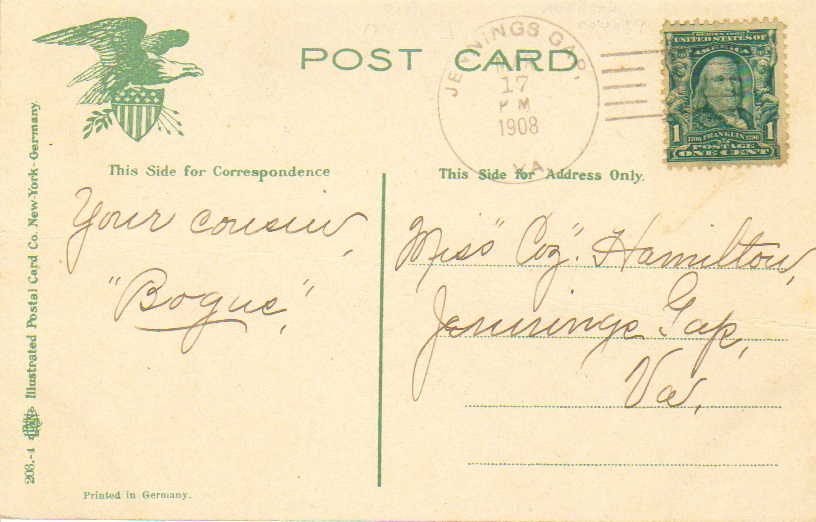 POST CARD
JENNINGS GAP,
17
P M
1908
VA.
SERIES 1902
UNITED STATES OF
AMERICA
1 1706 FRANKLIN 1790 1
POSTAGE
ONE CENT
This Side for Correspondence
This Side for Address Only.
Your cousin,
"Bogue",
Miss "Coz". Hamilton,
Jennings Gap,
Va.
203.-4 Illustrated Postal Card Co. New-York-Germany.
Printed in Germany.